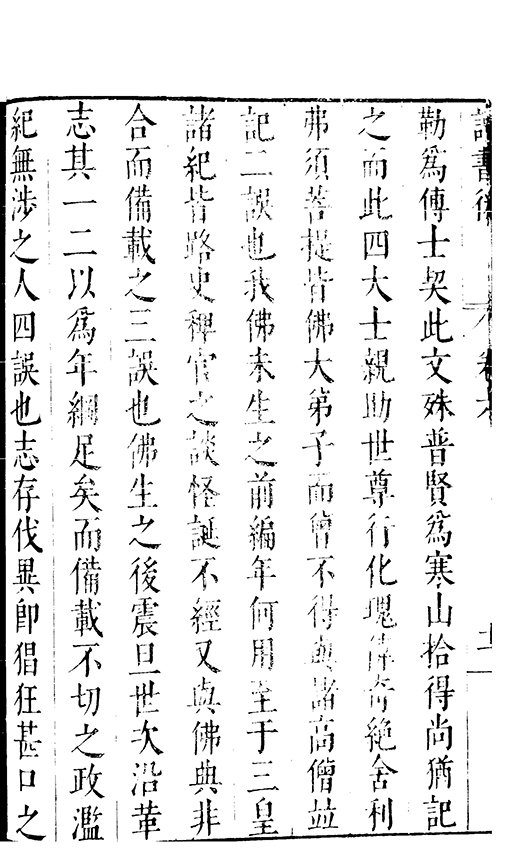 讀書後 卷六 十一
勒為傅士契此文殊普賢為寒山拾得尚猶記
之而此四大士親助世尊行化瑰偉奇絶舍利
弗須菩提皆佛大弟子而曾不得與諸高僧並
記二誤也我佛未生之前編年何用至于三皇
諸紀皆路史稗官之談怪誕不經又與佛典非
合而備載之三誤也佛生之後震旦世次沿革
志其一二以為年綱足矣而備載不切之政濫
紀無涉之人四誤也志存伐異卽猖狂甚口之